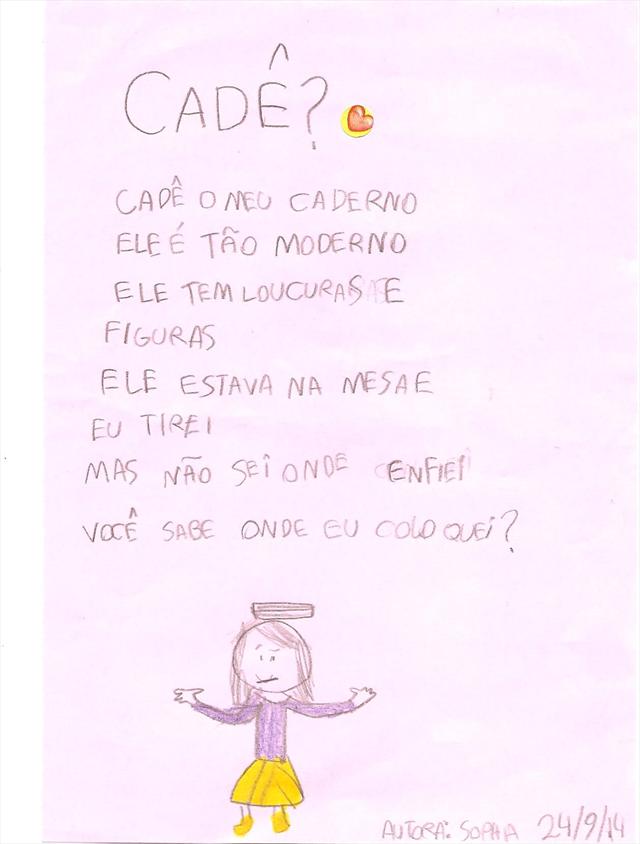 CADÊ?
CADÊ O MEU CADERNO
ELE É TÃO MODERNO
ELE TEM LOUCURAS E
FIGURAS
ELE ESTAVA NA MESA E
EU TIREI
MAS NÃO SEI ONDE ENFIEI
VOCÊ SABE ONDE EU COLOQUEI?
AUTORA: SOPHA 24/9/14